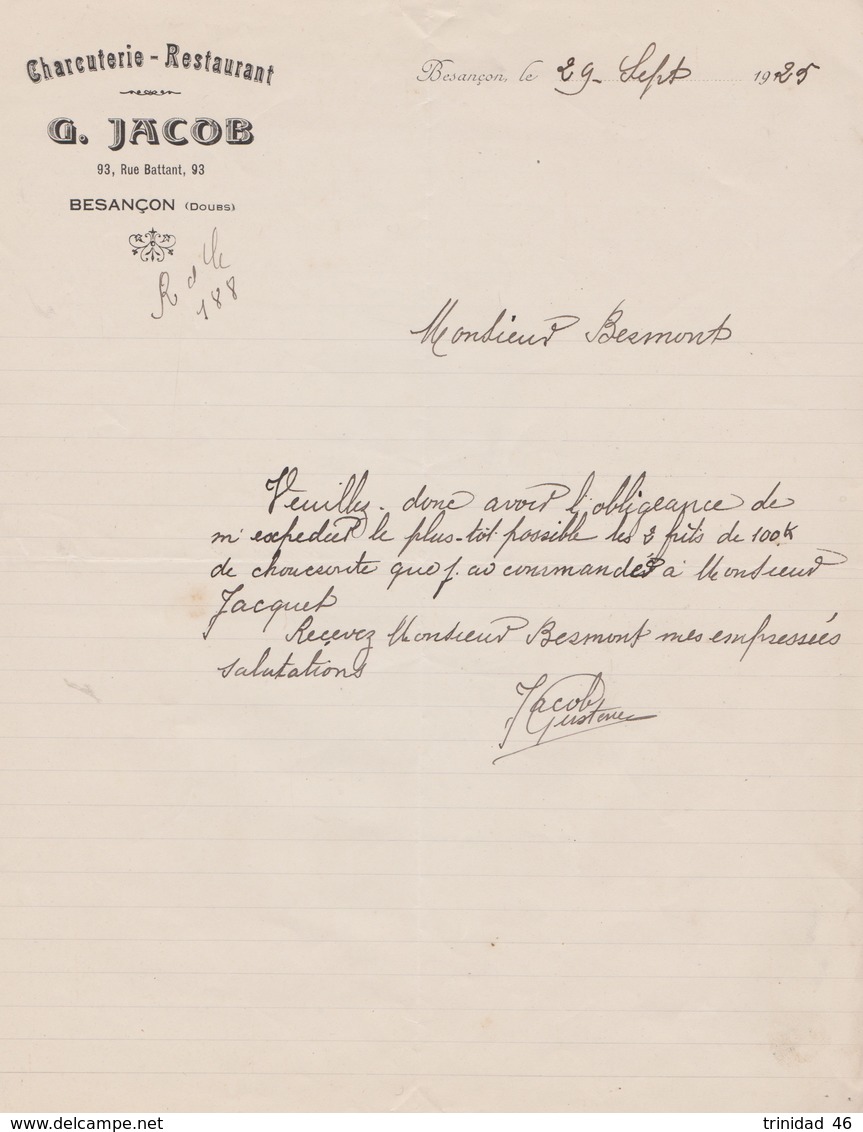 Charcuterie - Restaurant
G. JACOB
93, Rue Battant, 93
BESANÇON (DOUBS)
Besançon, le 29 Sept 1925
R d
188
Monsieur Besmont
Veuillez donc avoir l'obligeance de
m'expedier le plus-tôt possible les 2 fûts de 100K
de choucroute que j'ai commandés à Monsieur
Jacquet
Recevez Monsieur Besmont mes empressées
salutations
Jacob
Gustave
trinidad 46